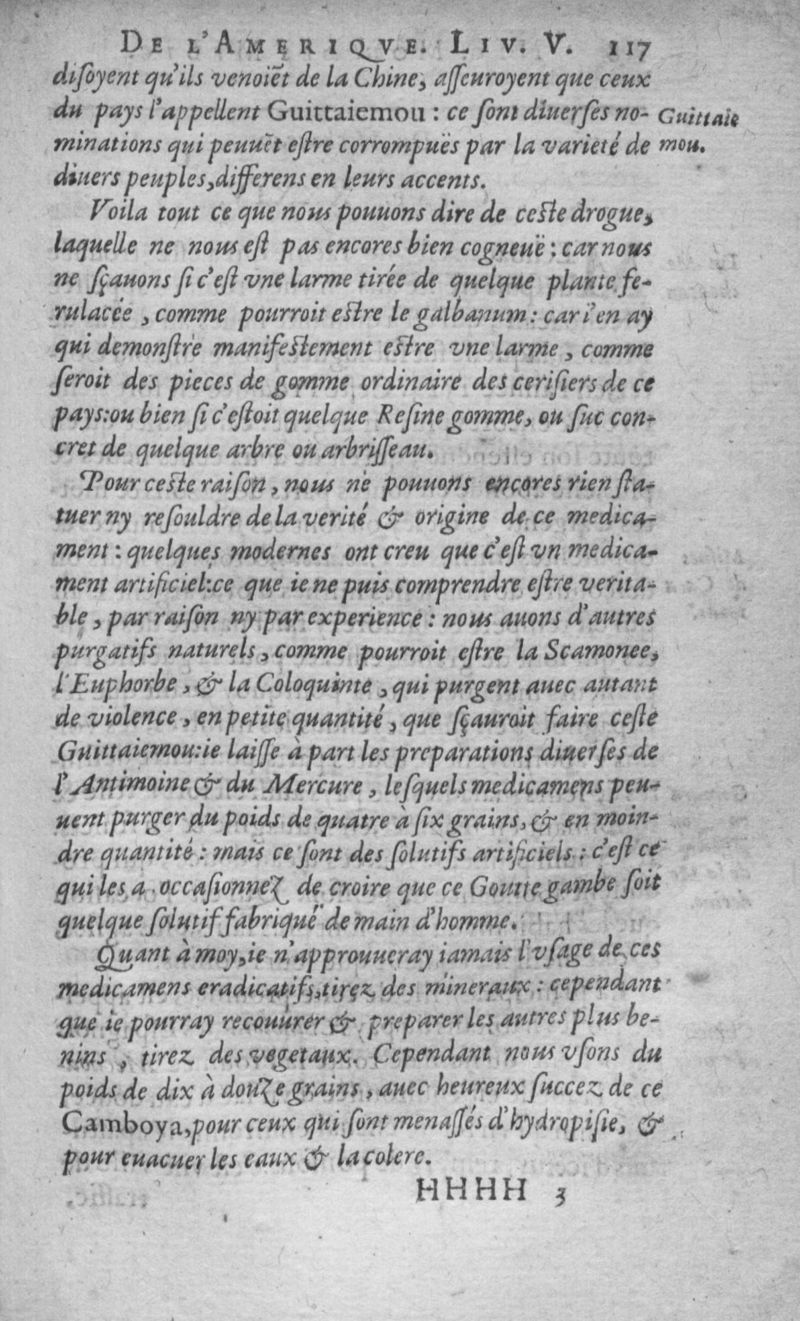 DE L'AMERIQVE. LIV. V. 117
diſoyent qu'ils venoiẽt de la Chine, aſſeuroyent que ceux
du pays l'appellent Guittaiemou : ce ſont diuerſes no-
Guittaie
mou.
minations qui peuuẽt eſtre corrompuës par la varieté de
diuers peuples, differens en leurs accents.
Voila tout ce que nous pouuons dire de ceſte drogue,
laquelle ne nous eſt pas encores bien cogneuë : car nous
ne ſçauons ſi c'eſt vne larme tirée de quelque plante fe-
rulacée , comme pourroit eſtre le galbanum : car i'en ay
qui demonſtre manifeſtement eſtre vne larme , comme
ſeroit des pieces de gomme ordinaire des ceriſiers de ce
pays:ou bien ſi c'eſtoit quelque Reſine gomme, ou ſuc con-
cret de quelque arbre ou arbriſſeau.
Pour ceſte raiſon , nous ne pouuons encores rien ſta-
tuer ny reſouldre de la verité & origine de ce medica-
ment : quelques modernes ont creu que c'eſt vn medica-
ment artificiel:ce que ie ne puis comprendre eſtre verita-
ble , par raiſon ny par experience : nous auons d'autres
purgatifs naturels , comme pourroit eſtre la Scamonee,
l'Euphorbe , & la Coloquinte , qui purgent auec autant
de violence , en petite quantité , que ſçauroit faire ceſte
Guittaiemou:ie laiſſe à part les preparations diuerſes de
l'Antimoine & du Mercure , leſquels medicamens peu-
uent purger du poids de quatre à ſix grains, & en moin-
dre quantité : mais ce ſont des ſolutifs artificiels : c'eſt ce
qui les a occaſionnez de croire que ce Goutte gambe ſoit
quelque ſolutif fabriqué de main d'homme.
Quant à moy,ie n'approuueray iamais l'vſage de ces
medicamens eradicatifs,tirez des mineraux : cependant
que ie pourray recouurer & preparer les autres plus be-
nins , tirez des vegetaux. Cependant nous vſons du
poids de dix à douze grains , auec heureux ſuccez de ce
Camboya,pour ceux qui ſont menaſſés d'hydropiſie, &
pour euacuer les eaux & la colere.
HHHH 3